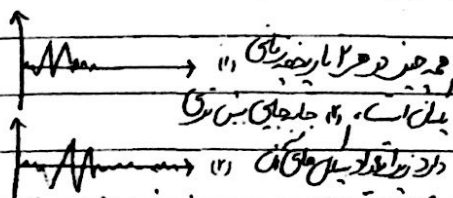 همه چیز در هر ۲ تاریخچه زمانی (۱)
یکسان است، (۲) جابجایی بیش تری
دارد زیرا تعداد سیکل های آن (۲)